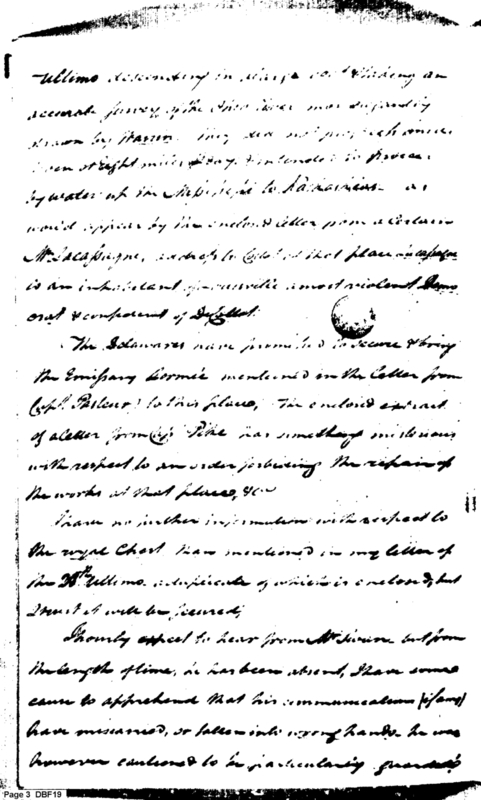 Ultimo descending in a large boat & taking an
accurate survey of the Ohio River most elegantly
drawn by Warrin. They did not progress more
than eight miles a day & intended to
by water up the Missisipi to Kaskaskias as
would appear by the enclosed letter from a Certain
Mr Lacassagne, address to at that place Lacassagne
is an inhabitant of Louisville a most violent Demo
crat & confederent of De Collot.
The Delawares have promised to secure & bring
the Emissary mentioned in the letter from
Capt. Pasteur to this place, The enclosed extract
of a letter from Cap Pike has something misterious
with respect to an order forbiding the repair of
the works at that place, &ca
I have no further information with respect to
the royal Chest than mentioned in my letter of
the 28th Ultimo a duplicate of which is enclosed, but
I trust it will be secured;
I hourly expect to hear from Mr but from
the length of time, he has been absent, I have some
cause to apprehend that his communications (if any)
have miscarried, or fallen into wrong hands he was
however cautioned to be particularly guarded
Page 3 DBF19